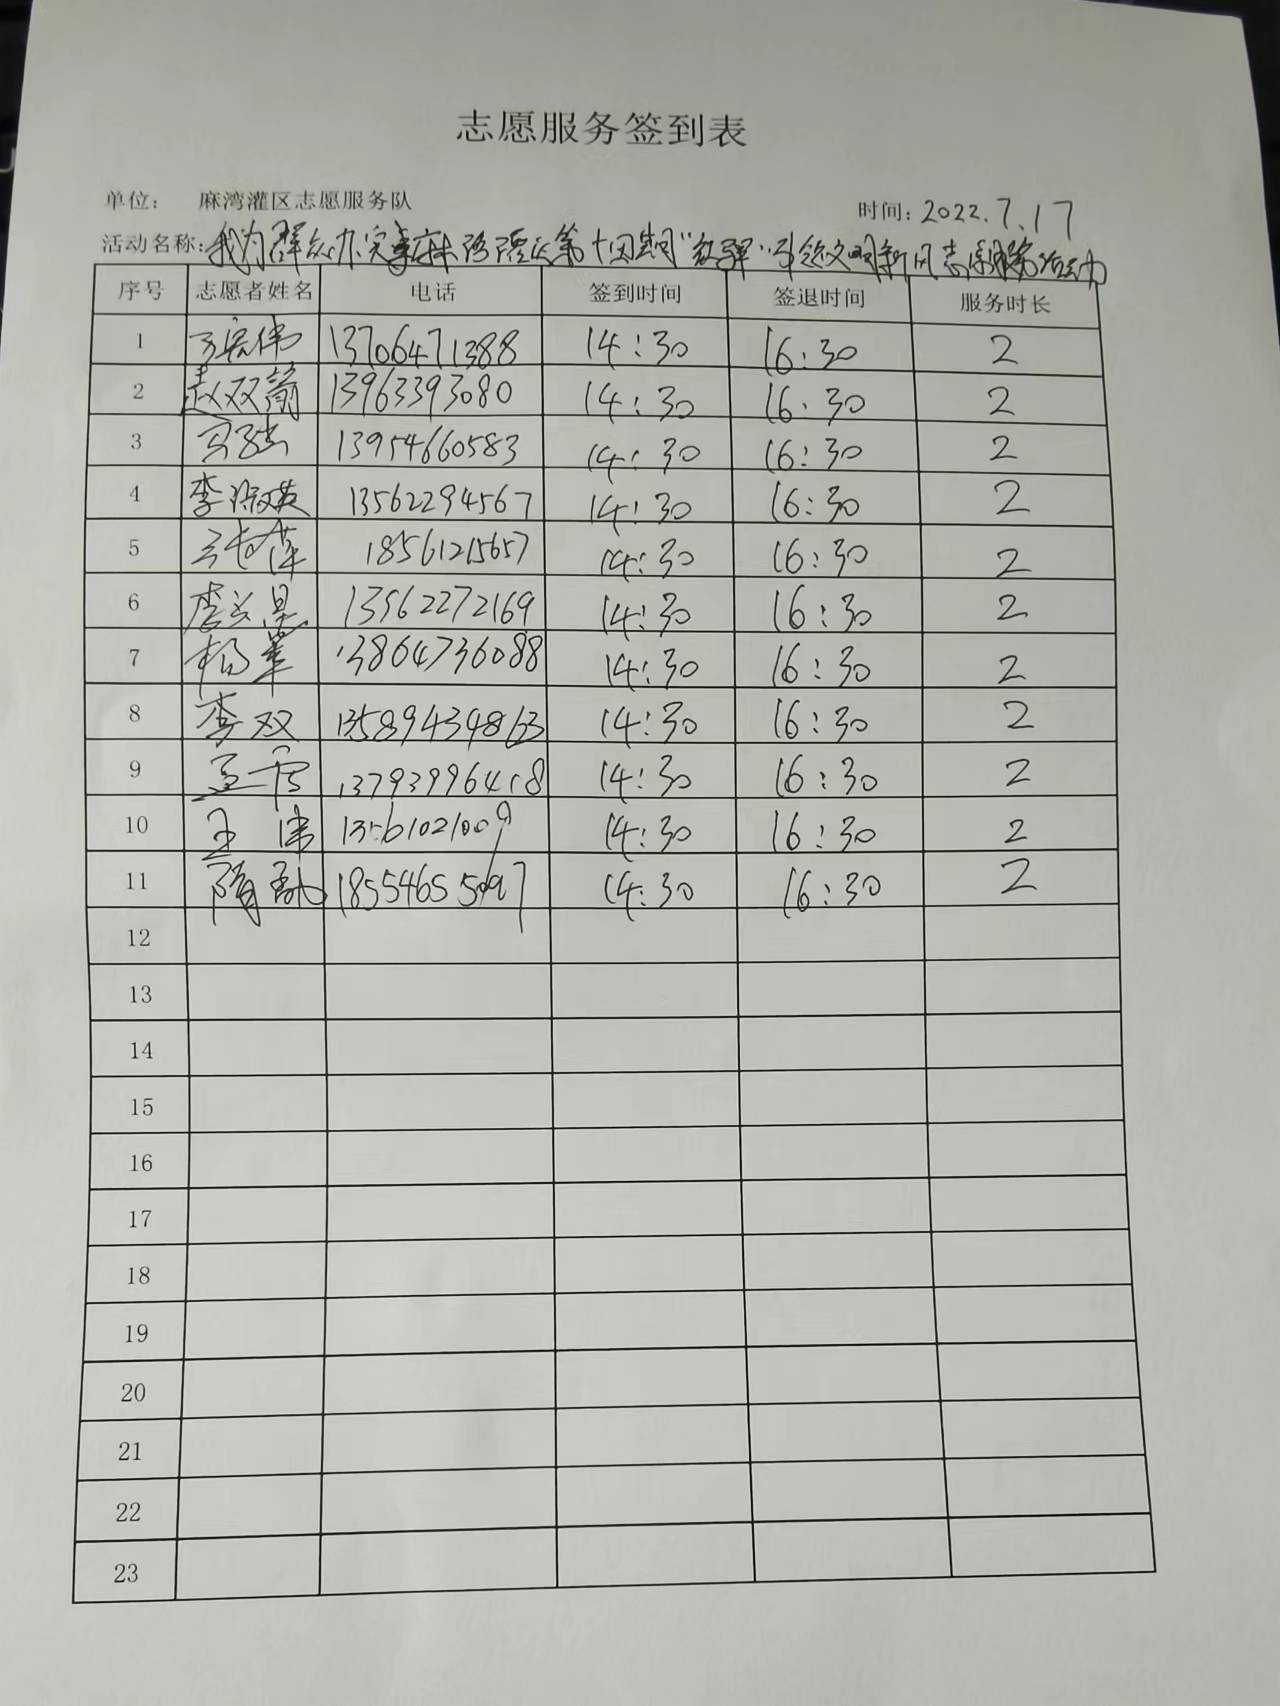 志愿服务签到表
单位： 麻湾灌区志愿服务队
时间：2022.7.17
活动名称：我为群众办实事 第十四期 文明新风志愿服务活动
序号 志愿者姓名 电话 签到时间 签退时间 服务时长
1 13706471388 14:30 16:30 2
2 赵双 13963393080 14:30 16:30 2
3 13954660583 14:30 16:30 2
4 李淑英 13562294567 14:30 16:30 2
5 18561215657 14:30 16:30 2
6 李兰 13562272169 14:30 16:30 2
7 杨 13864736088 14:30 16:30 2
8 李双 14:30 16:30 2
9 孟雪 14:30 16:30 2
10 王伟 13561021009 14:30 16:30 2
11 隋 14:30 16:30 2
12
13
14
15
16
17
18
19
20
21
22
23